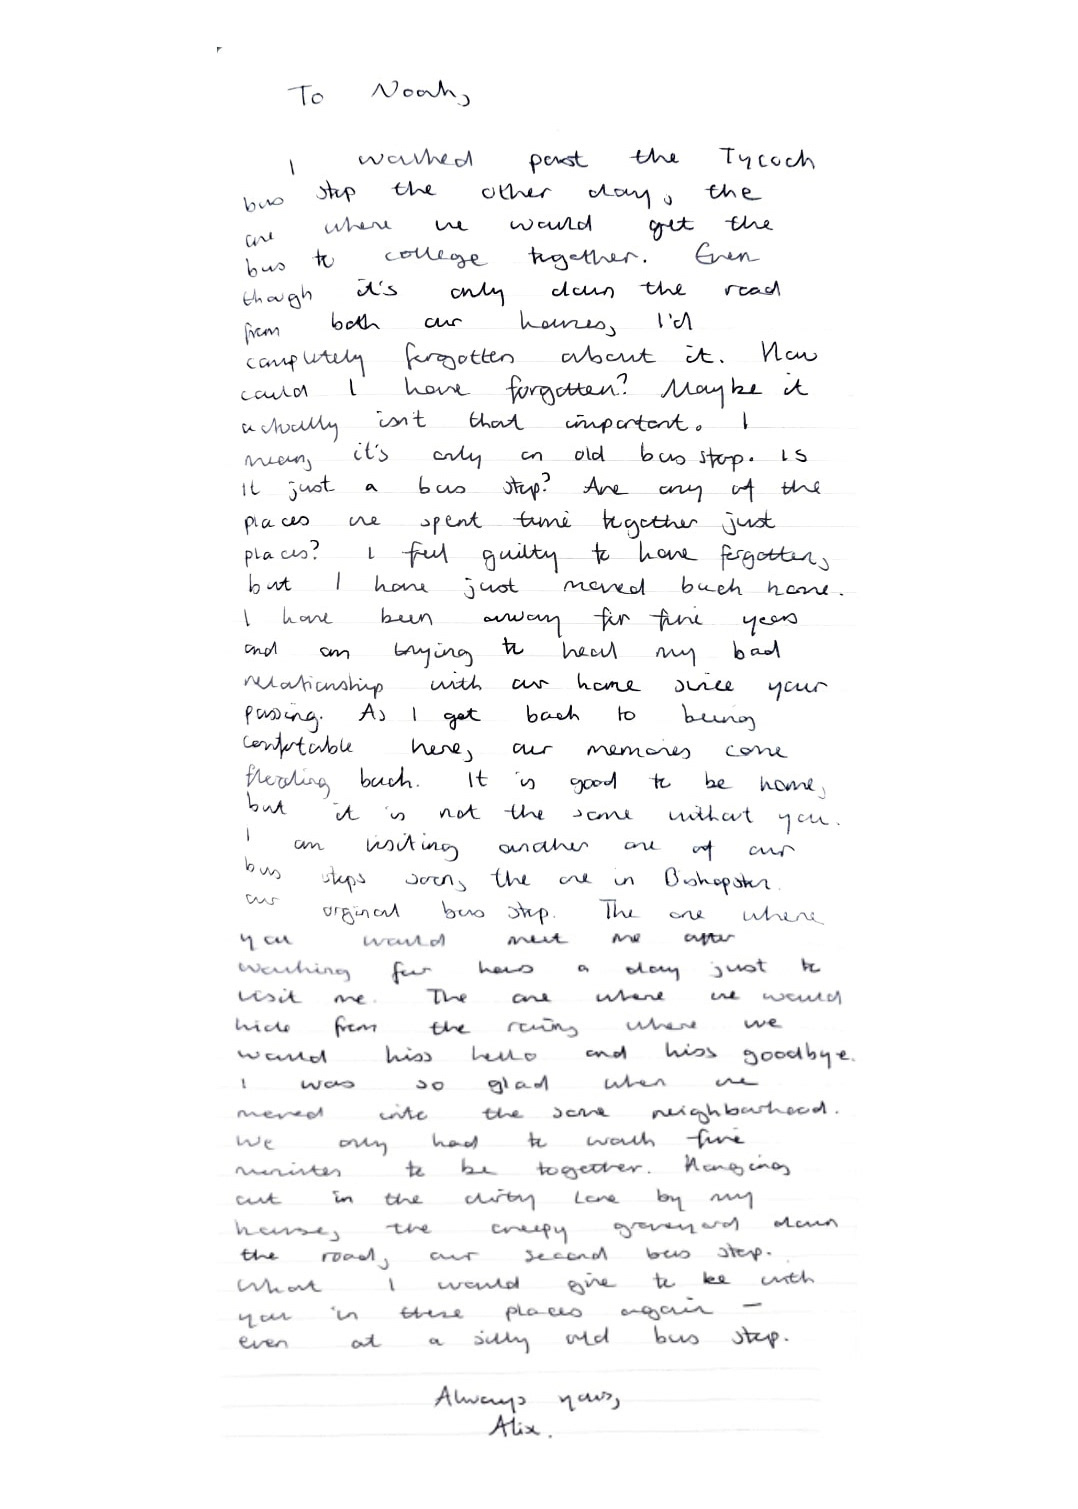 To Noah,
I walked past the Tycoch
bus stop the other day, the
one where we would get the
bus to college together. Even
though it's only down the road
from both our houses, I'd
completely forgotten about it. How
could I have forgotten? Maybe it
actually isn't that important. I
mean, it's only an old bus stop. Is
it just a bus stop? Are any of the
places we spent time together just
places? I feel guilty to have forgotten,
but I have just moved back home.
I have been away for five years
and am trying to heal my bad
relationship with our home since your
passing. As I get back to being
comfortable here, our memories come
flooding back. It is good to be home,
but it is not the same without you.
I am visiting another one of our
bus stops soon, the one in Bishopston.
our orginal bus stop. The one where
you would meet me after
walking for hours a day just to
visit me. The one where we would
hide from the rain, where we
would kiss hello and kiss goodbye.
I was so glad when we
moved into the same neighbourhood.
We only had to walk five
minutes to be together. Hanging
out in the dirty lane by my
house, the creepy graveyard down
the road, our second bus stop.
What I would give to be with
you in these places again –
even at a silly old bus stop.
Always yours,
Alix.